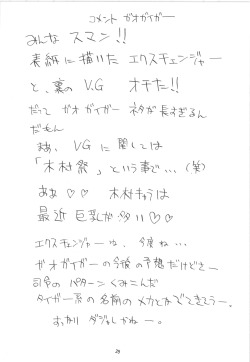 コメント ガオガイガー
みんな スマン!!
表紙に描いた エクスチェンジャー
と、裏の V.G オチた!!
だって ガオガイガー ネタが長すぎるん
だもん
まあ、VG に関しては
「木村祭」という事で…(笑)
ああ♡♡ 木村キャラは
最近 巨乳が多い♡♡
エクスチェンジャーは、今度ね…
ガオガイガーの今後の予想だけどさー
司令の パターン くみこんだ
タイガー系の名前のメカとかでてきそう。
もっちろん ダジャレかねー。
29